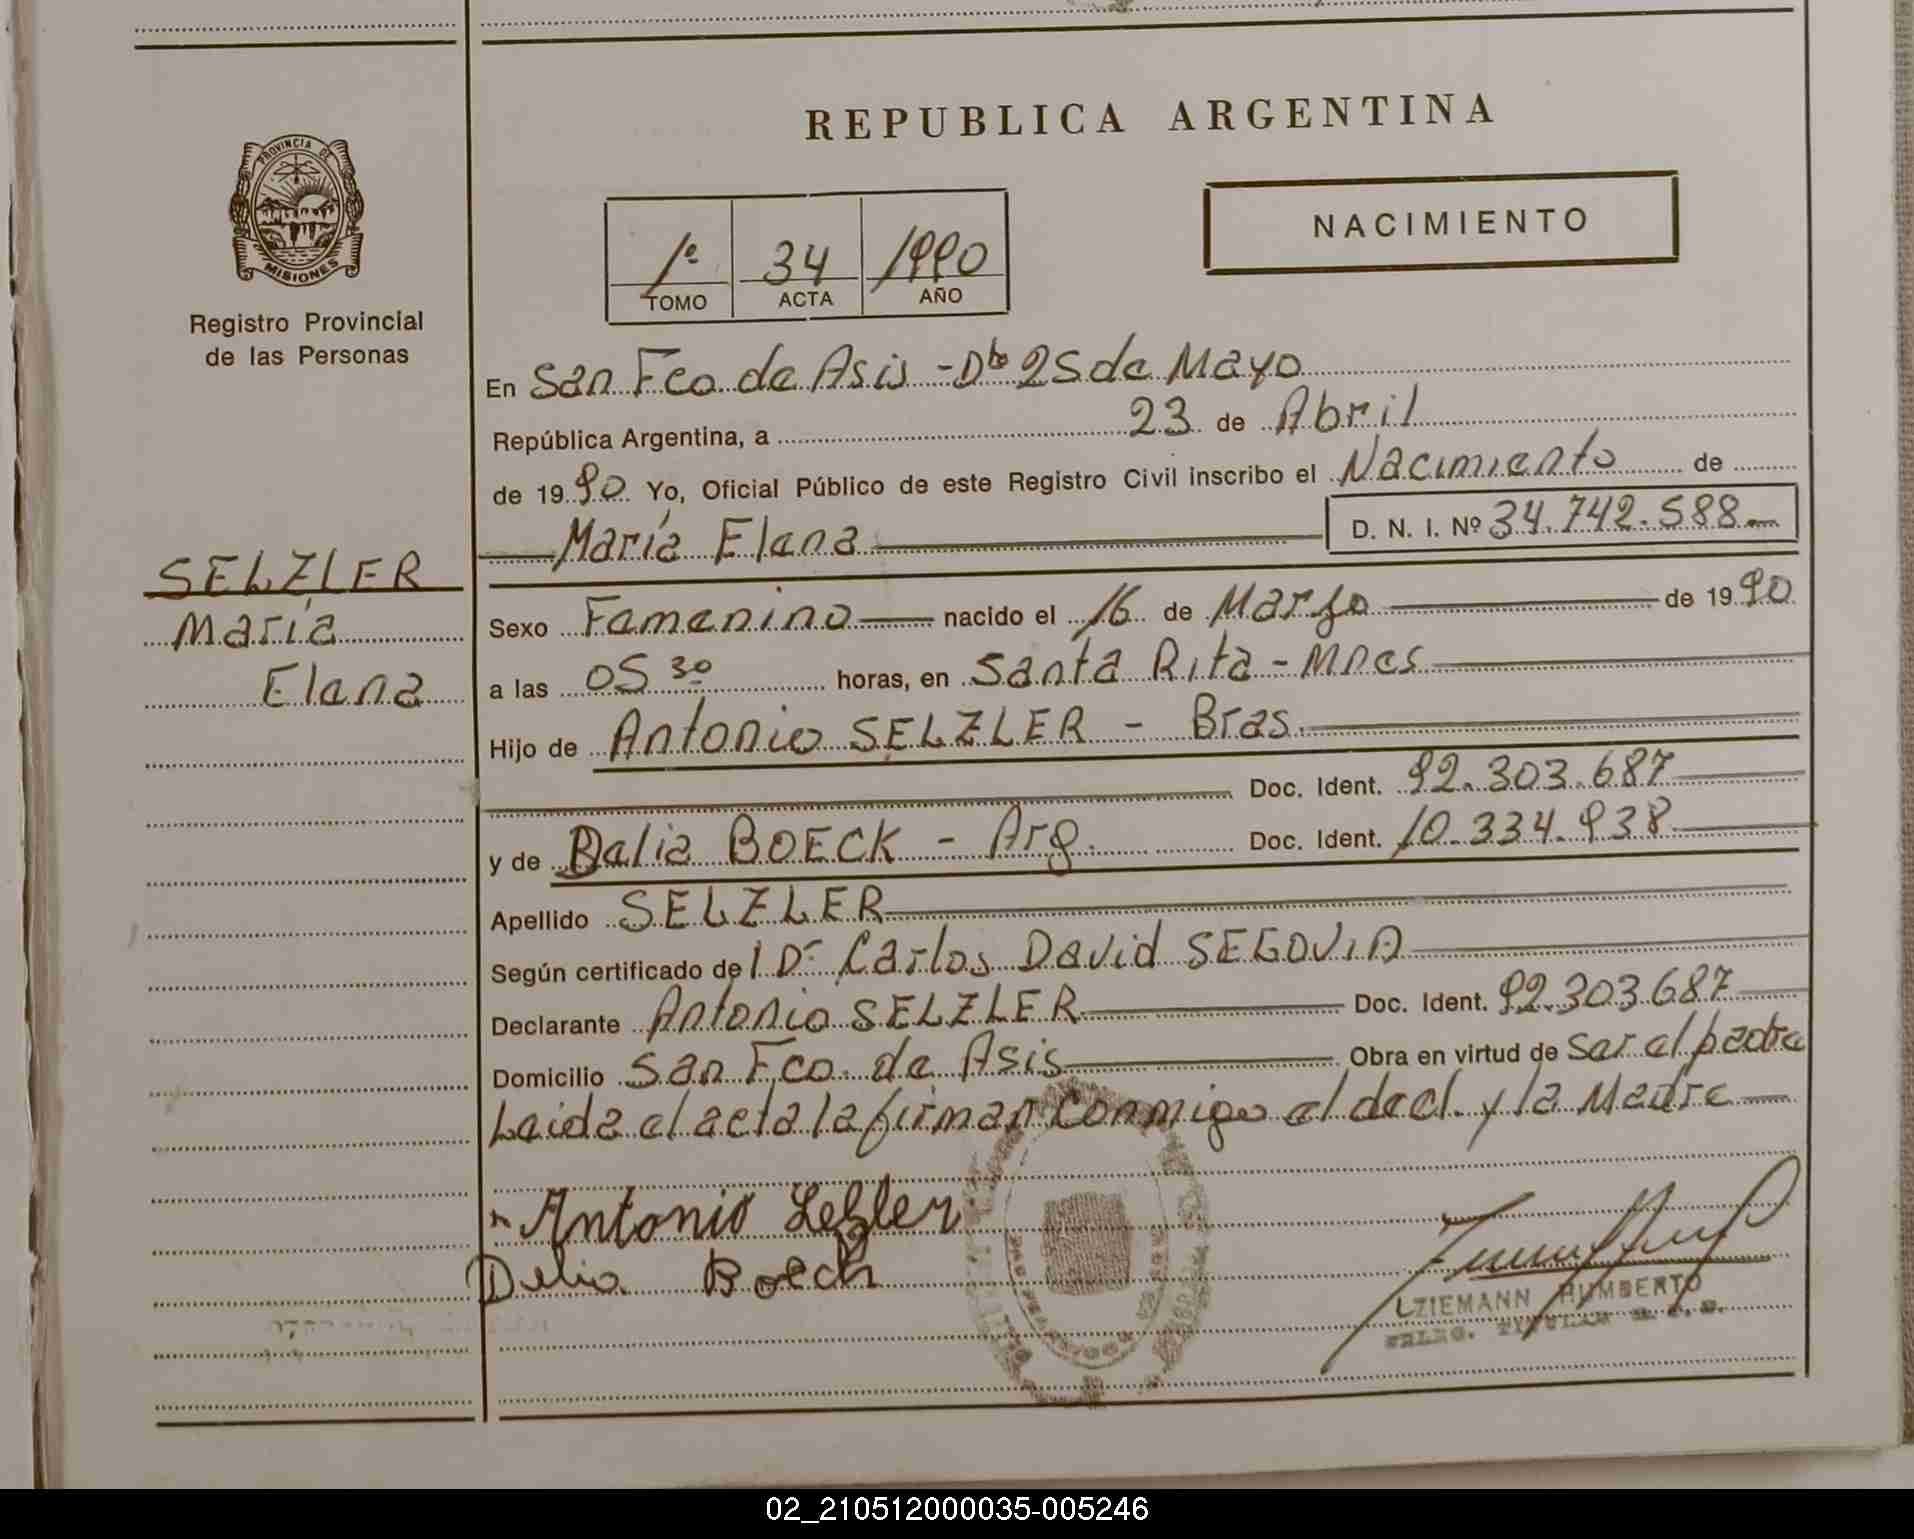 REPUBLICA ARGENTINA
PROVINCIA DE
MISIONES
Registro Provincial
de las Personas
NACIMIENTO
1º 34 1990
TOMO ACTA AÑO
En San Fco de Asis - Dto 25 de Mayo
República Argentina, a 23 de Abril
de 1990 Yo, Oficial Público de este Registro Civil inscribo el Nacimiento de
María Elena D. N. I. Nº 34.742.588
SELZLER
María
Elena
Sexo Femenino nacido el 16 de Marzo de 1990
a las 05 30 horas, en Santa Rita - Mnes
Hijo de Antonio SELZLER - Bras.
Doc. Ident. 92.303.687
y de Delia BOECK - Arg. Doc. Ident. 10.334.938
Apellido SELZLER
Según certificado del Dr Carlos David SEGOVIA
Declarante Antonio SELZLER Doc. Ident. 92.303.687
Domicilio San Fco. de Asis Obra en virtud de ser el padre
Leida el acta la firman conmigo el decl. y la Madre
Antonio Selzler
Delia Boeck
ZIEMANN HUMBERTO
02_210512000035-005246